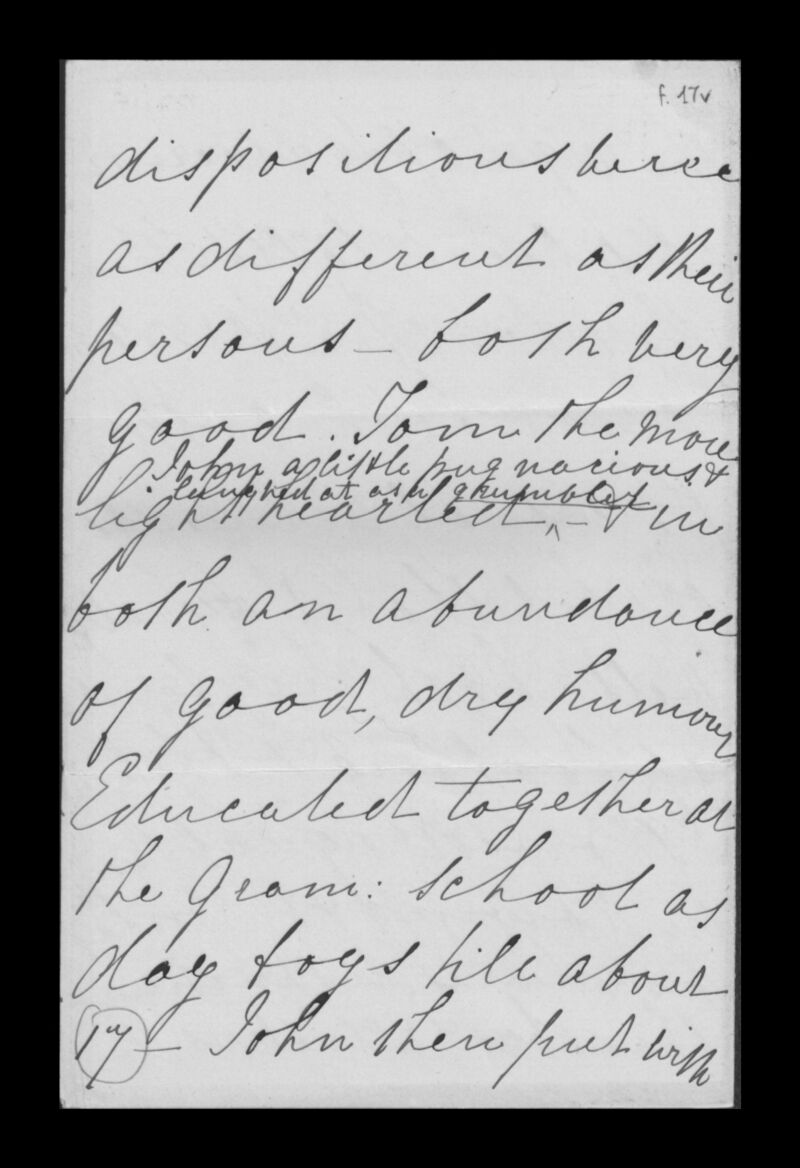 f. 17v
dispositions were
as different as their
persons – both very
good. Tom the more
John a little pugnacious &
laughed at as a grumbler
light hearted, – & in
both an abundance
of good, dry humour
Educated together at
the Gram: school as
day boys till about
17 – John then put with